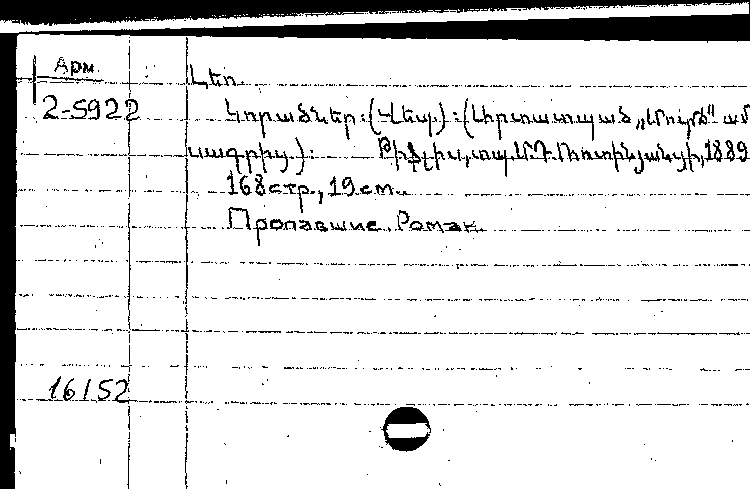 Арм.
2-5922
Լեո.
Կորածներ: (Վեպ): (Արտատպած „Մուրճ" ամ
սագրից.): Թիֆլիս, տպ. Մ. Դ. Ռոտինյանցի, 1889
168 стр., 19 см.
Пропавшие. Роман.
16152